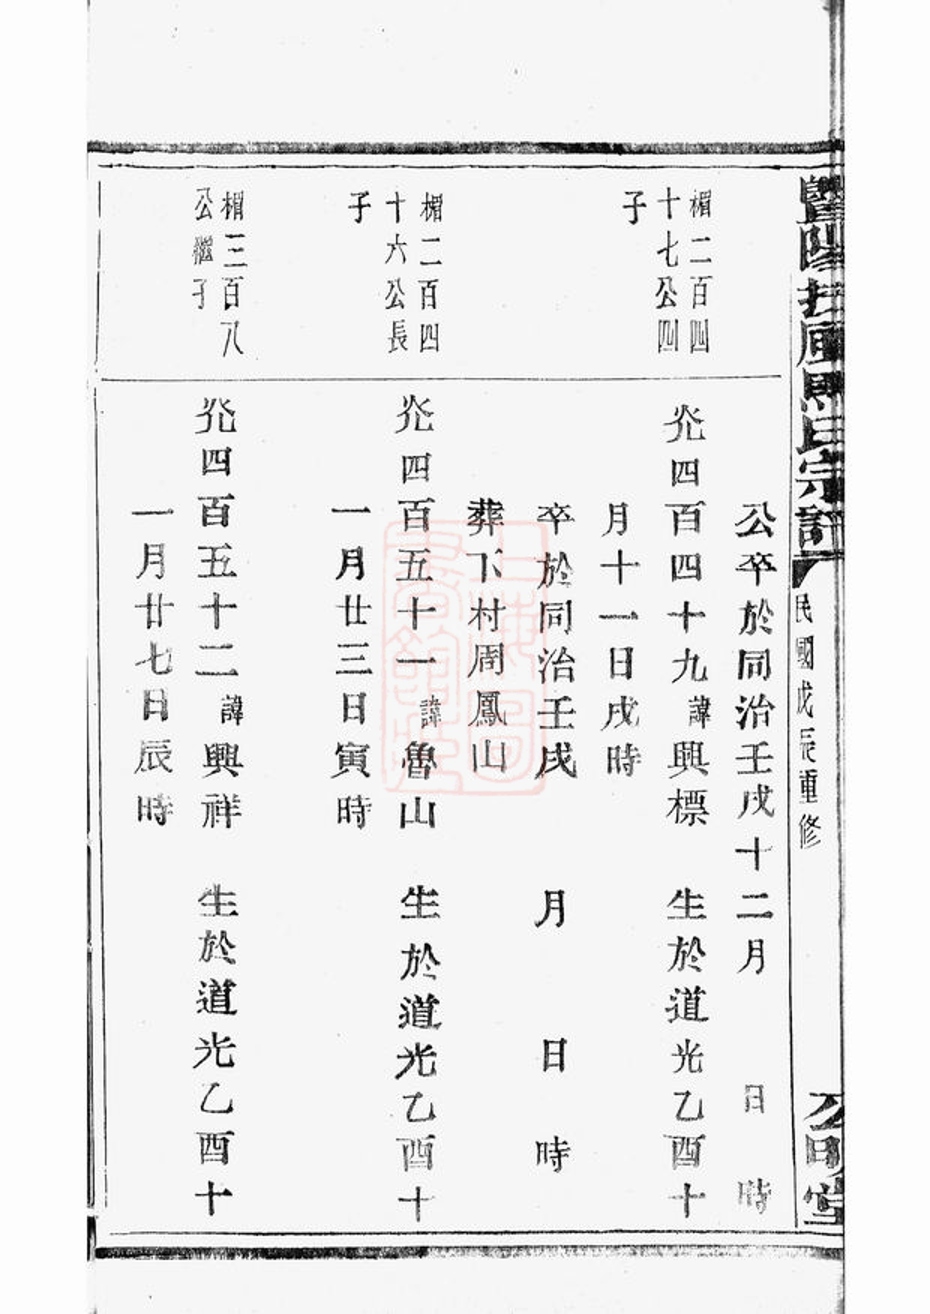 暨陽扶風馬氏宗譜
民國戊辰重修
公明堂
公卒於同治壬戌十二月 日 時
楣二百四
十七公四
子
烾四百四十九諱興標 生於道光乙酉十
月十一日戌時
卒於同治壬戌 月 日 時
葬下村周鳳山
楣二百四
十六公長
子
烾四百五十一諱魯山 生於道光乙酉十
一月廿三日寅時
楣三百八
公繼子
烾四百五十二諱興祥 生於道光乙酉十
一月廿七日辰時